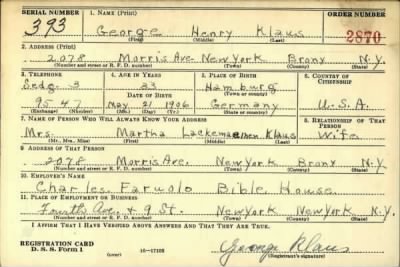 SERIAL NUMBER 1. NAME (Print) ORDER NUMBER
393 George Henry Klaus 2870
(First) (Middle) (Last)
2. ADDRESS (Print)
2078 Morris Ave. New York Bronx N.Y.
(Number and street or R. F. D. number) (Town) (County) (State)
3. TELEPHONE 4. AGE IN YEARS 5. PLACE OF BIRTH 6. COUNTRY OF CITIZENSHIP
Sedg. 3 33 Hamburg
DATE OF BIRTH (Town or county)
9547 May 21 1906 Germany U.S.A.
(Exchange) (Number) (Mo.) (Day) (Yr.) (State or country)
7. NAME OF PERSON WHO WILL ALWAYS KNOW YOUR ADDRESS 8. RELATIONSHIP OF THAT PERSON
Mrs. Martha Klaus Wife
(Mr., Mrs., Miss) (First) (Middle) (Last)
9. ADDRESS OF THAT PERSON
2078 Morris Ave. New York Bronx N.Y.
(Number and street or R. F. D. number) (Town) (County) (State)
10. EMPLOYER'S NAME
Charles Farwolo Bible House
11. PLACE OF EMPLOYMENT OR BUSINESS
Fourth Ave. & 9 St. New York New York N.Y.
(Number and street or R. F. D. number) (Town) (County) (State)
I AFFIRM THAT I HAVE VERIFIED ABOVE ANSWERS AND THAT THEY ARE TRUE.
REGISTRATION CARD
D. S. S. Form 1 16—17105 George Klaus
(Registrant's signature)